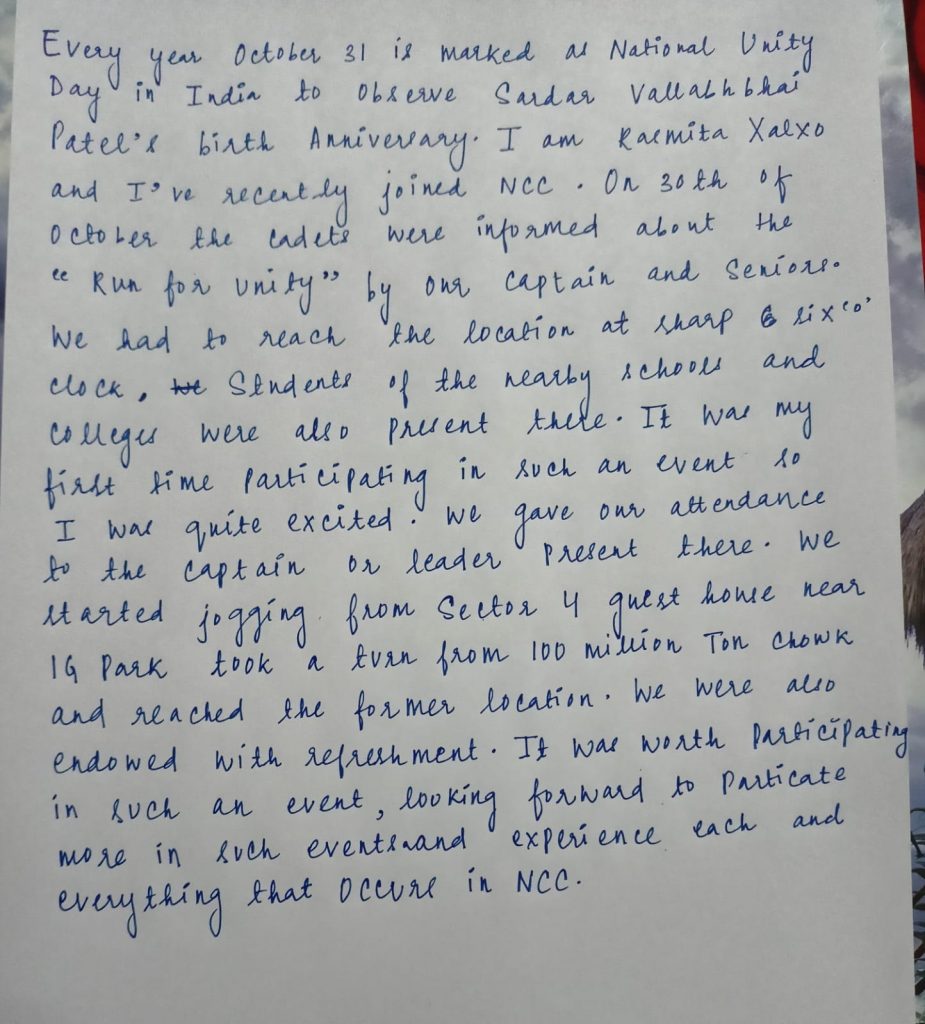 Every year October 31 is marked as National Unity
Day in India to observe Sardar Vallabhbhai
Patel's birth Anniversary. I am Rasmita Xalxo
and I've recently joined NCC. On 30th of
October the cadets were informed about the
"Run for unity" by our captain and Seniors.
We had to reach the location at sharp 6 six o'
clock, we Students of the nearby schools and
colleges were also present there. It was my
first time Participating in such an event so
I was quite excited. We gave our attendance
to the captain or leader present there. We
started jogging from Sector 4 guest house near
IG Park took a turn from 100 million Ton Chowk
and reached the former location. We were also
endowed with refreshment. It was worth Participating
in such an event, looking forward to Particate
more in such events and experience each and
everything that occurs in NCC.